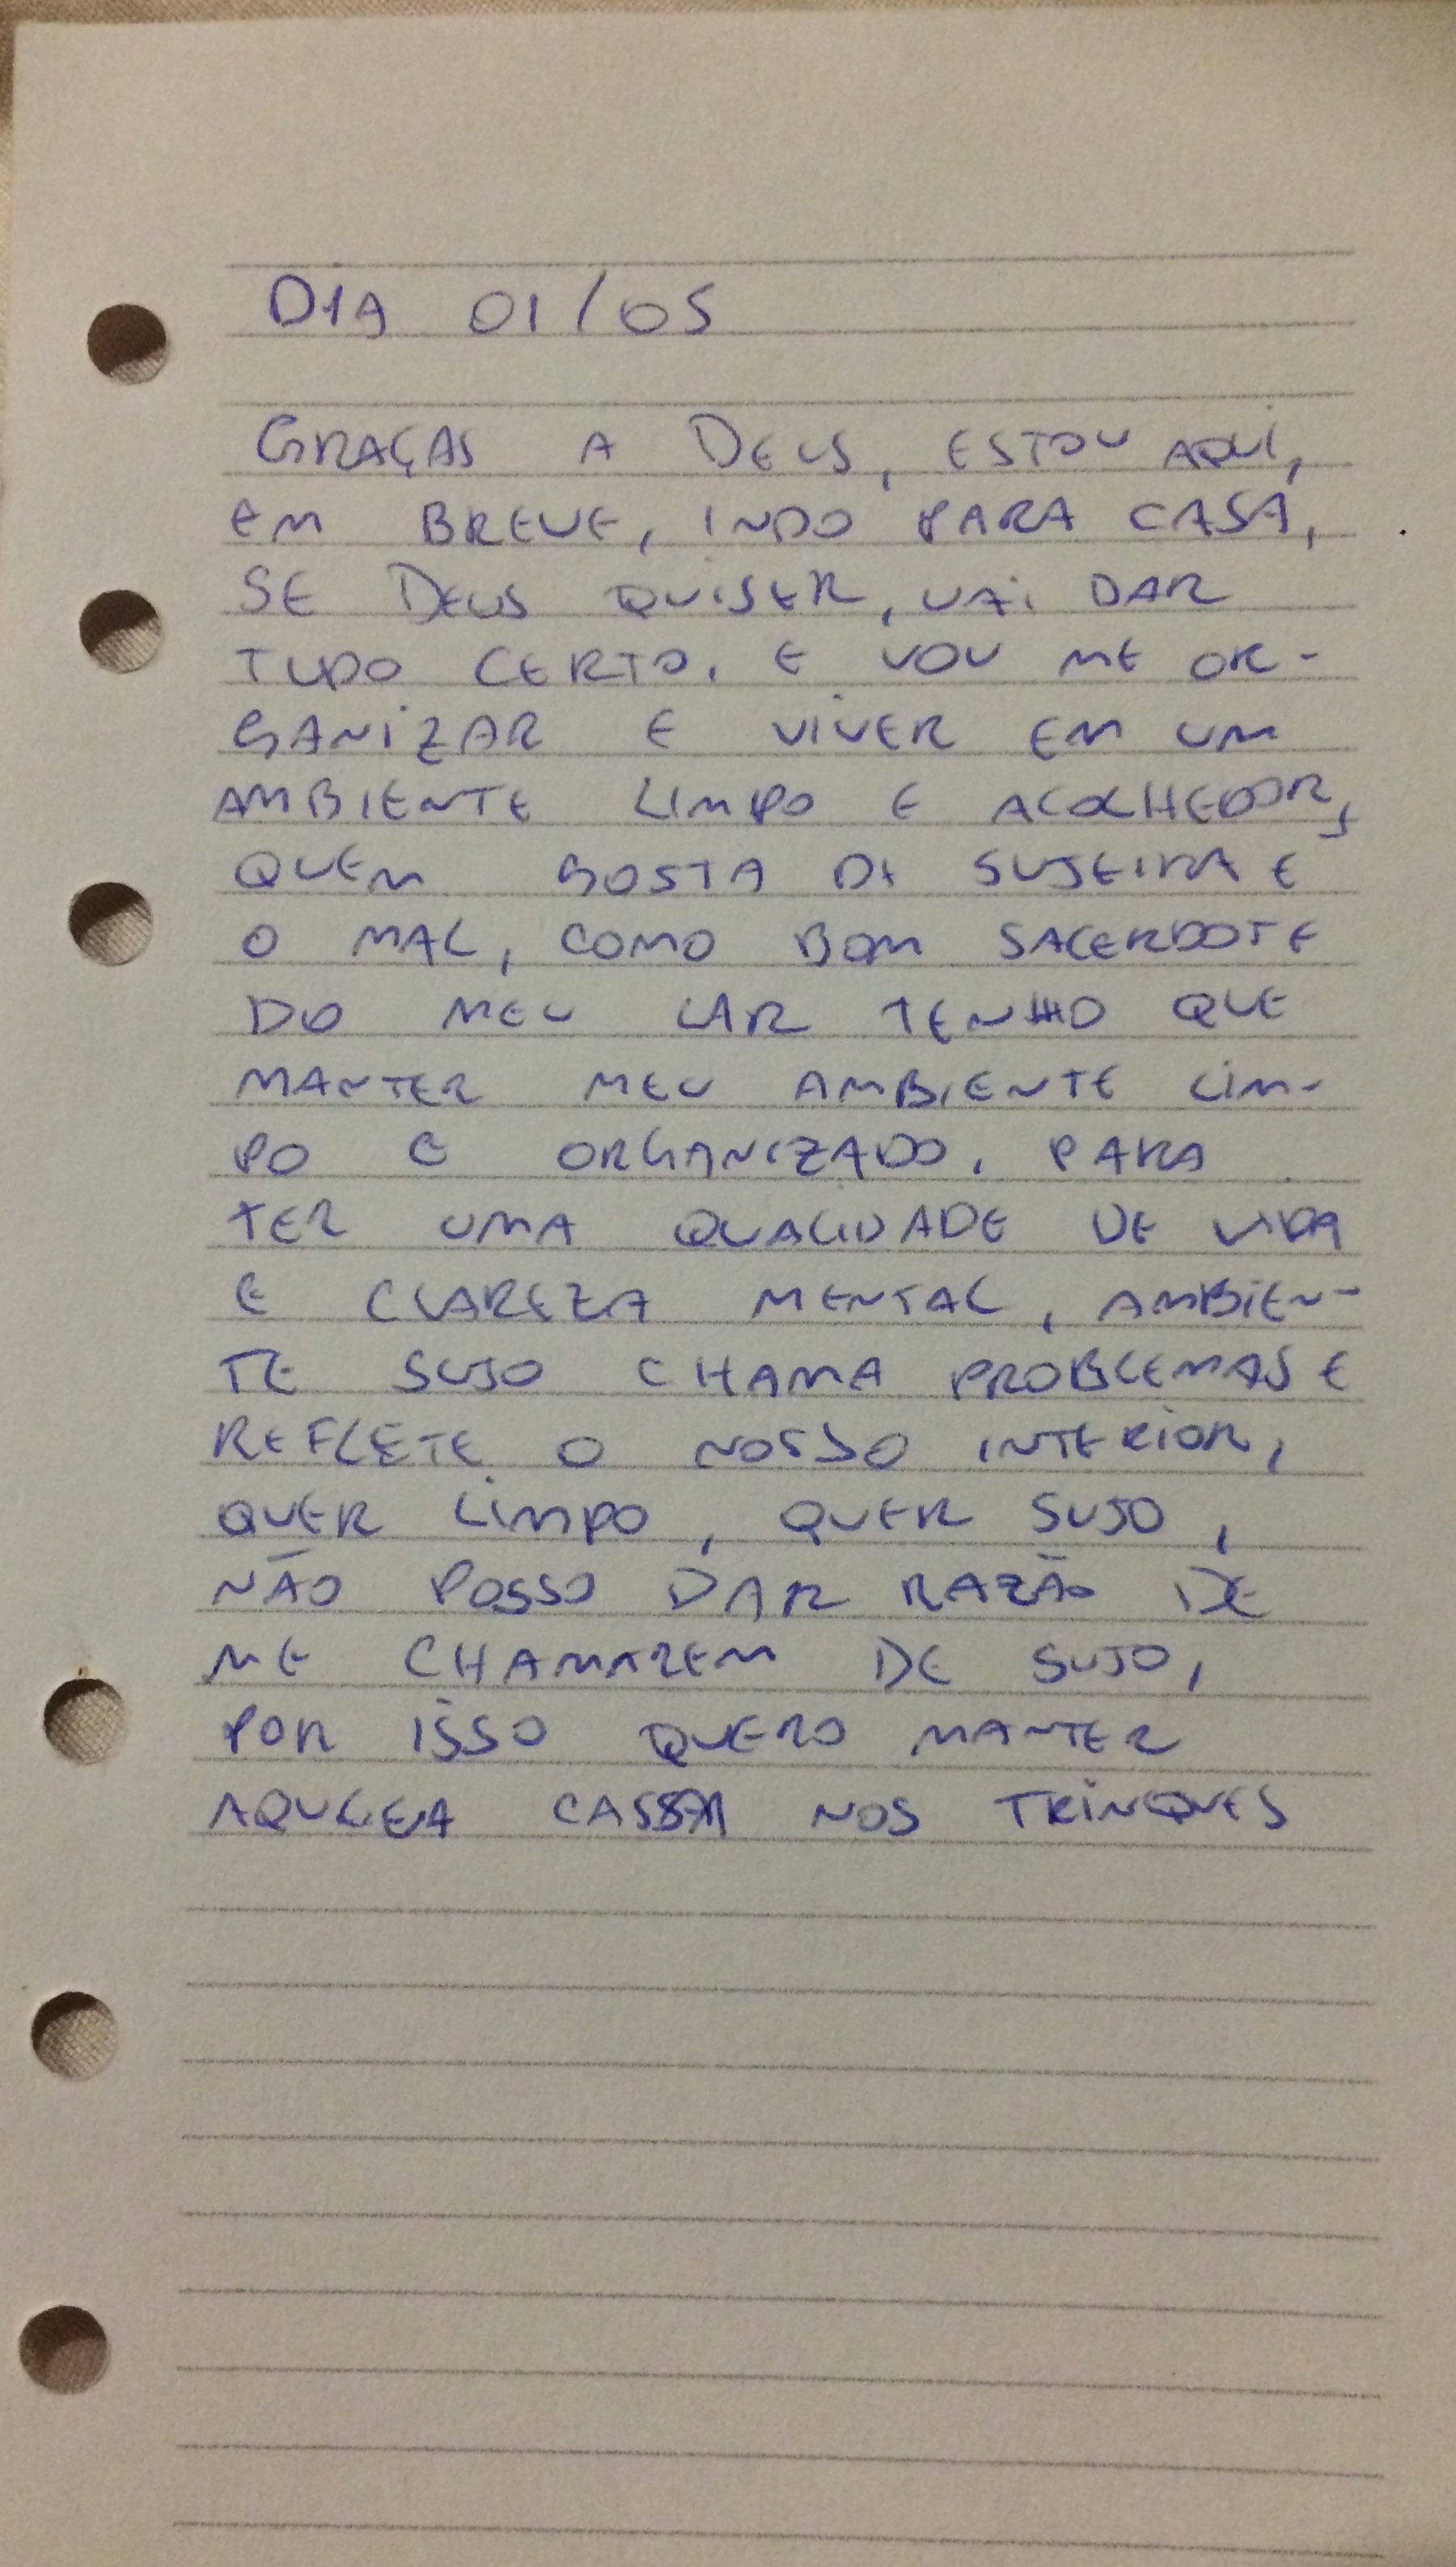 DIA 01/05
GRAÇAS A DEUS, ESTOU AQUI,
EM BREVE, INDO PARA CASA,
SE DEUS QUISER, VAI DAR
TUDO CERTO. E VOU ME OR-
GANIZAR E VIVER EM UM
AMBIENTE LIMPO E ACOLHEDOR,
QUEM GOSTA DE SUJEIRA E
O MAL, COMO BOM SACERDOTE
DO MEU LAR TENHO QUE
MANTER MEU AMBIENTE LIM-
PO E ORGANIZADO. PARA
TER UMA QUALIDADE DE VIDA
E CLAREZA MENTAL, AMBIEN-
TE SUJO CHAMA PROBLEMAS E
REFLETE O NOSSO INTERIOR,
QUER LIMPO, QUER SUJO,
NÃO POSSO DAR RAZÃO DE
ME CHAMAREM DE SUJO,
POR ISSO QUERO MANTER
NOS TRINQUES